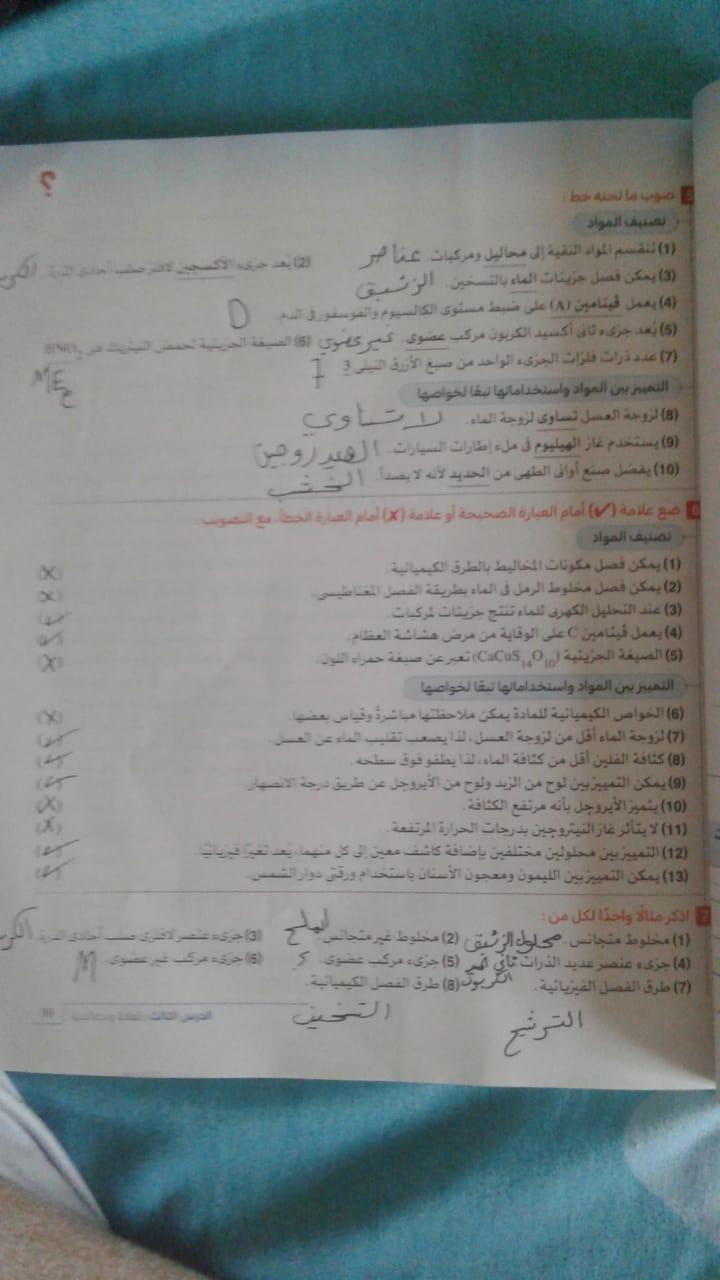 ؟
5 صوب ما تحته خط :
تصنيف المواد
(1) تنقسم المواد النقية إلى محاليل ومركبات. عناصر (2) يُعد جزىء الأكسجين لافلز صلب أحادى الذرة.
(3) يمكن فصل جزيئات الماء بالتسخين. الزئبق
(4) يعمل ڤيتامين (A) على ضبط مستوى الكالسيوم والفوسفور فى الدم. D
(5) يُعد جزىء ثانى أكسيد الكربون مركب عضوى. غير عضوي (6) الصيغة الجزيئية لحمض النيتريك هى HNO2
(7) عدد ذرات فلزات الجزىء الواحد من صبغ الأزرق النيلى 3
التمييز بين المواد واستخداماتها تبعًا لخواصها
(8) لزوجة العسل تساوى لزوجة الماء. لا تساوي
(9) يستخدم غاز الهيليوم فى ملء إطارات السيارات. الهيدروجين
(10) يفضل صنع أوانى الطهى من الحديد لأنه لا يصدأ. الخشب
6 ضع علامة (✓) أمام العبارة الصحيحة أو علامة (✗) أمام العبارة الخطأ، مع التصويب :
تصنيف المواد
(1) يمكن فصل مكونات المخاليط بالطرق الكيميائية. (✗)
(2) يمكن فصل مخلوط الرمل فى الماء بطريقة الفصل المغناطيسى. (✗)
(3) عند التحليل الكهربى للماء تنتج جزيئات لمركبات. (✓)
(4) يعمل ڤيتامين C على الوقاية من مرض هشاشة العظام. (✓)
(5) الصيغة الجزيئية (CaCuS14O10) تعبر عن صبغة حمراء اللون. (✗)
التمييز بين المواد واستخداماتها تبعًا لخواصها
(6) الخواص الكيميائية للمادة يمكن ملاحظتها مباشرةً وقياس بعضها. (✗)
(7) لزوجة الماء أقل من لزوجة العسل، لذا يصعب تقليب الماء عن العسل. (✓)
(8) كثافة الفلين أقل من كثافة الماء، لذا يطفو فوق سطحه. (✓)
(9) يمكن التمييز بين لوح من الزبد ولوح من الأيروجل عن طريق درجة الانصهار. (✓)
(10) يتميز الأيروجل بأنه مرتفع الكثافة. (✗)
(11) لا يتأثر غاز النيتروچين بدرجات الحرارة المرتفعة. (✗)
(12) التمييز بين محلولين مختلفين بإضافة كاشف معين إلى كل منهما، يُعد تغيرًا فيزيائيًا (✓)
(13) يمكن التمييز بين الليمون ومعجون الأسنان باستخدام ورقتى دوار الشمس. (✓)
7 اذكر مثالًا واحدًا لكل من :
(1) مخلوط متجانس. محلول الزئبق (2) مخلوط غير متجانس. (3) جزىء عنصر لافلزى صلب أحادى الذرة.
(4) جزىء عنصر عديد الذرات (5) جزىء مركب عضوى. (6) جزىء مركب غير عضوى. M
(7) طرق الفصل الفيزيائية. (8) طرق الفصل الكيميائية.
الترشيح
الدرس الثالث